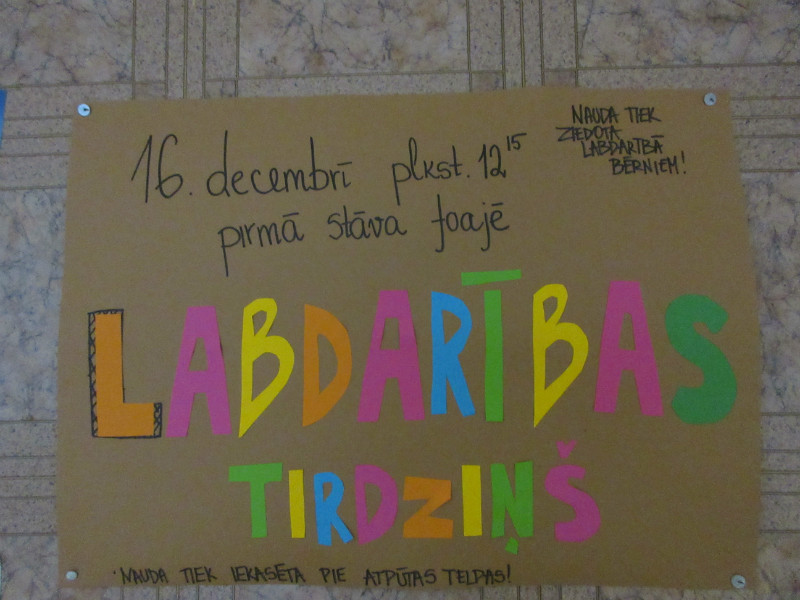 16. decembrī plkst. 12¹⁵
pirmā stāva foajē
NAUDA TIEK
ZIEDOTA
LABDARĪBĀ
BĒRNIEM!
LABDARĪBAS
TIRDZIŅŠ
NAUDA TIEK IEKASĒTA PIE ATPŪTAS TELPAS!